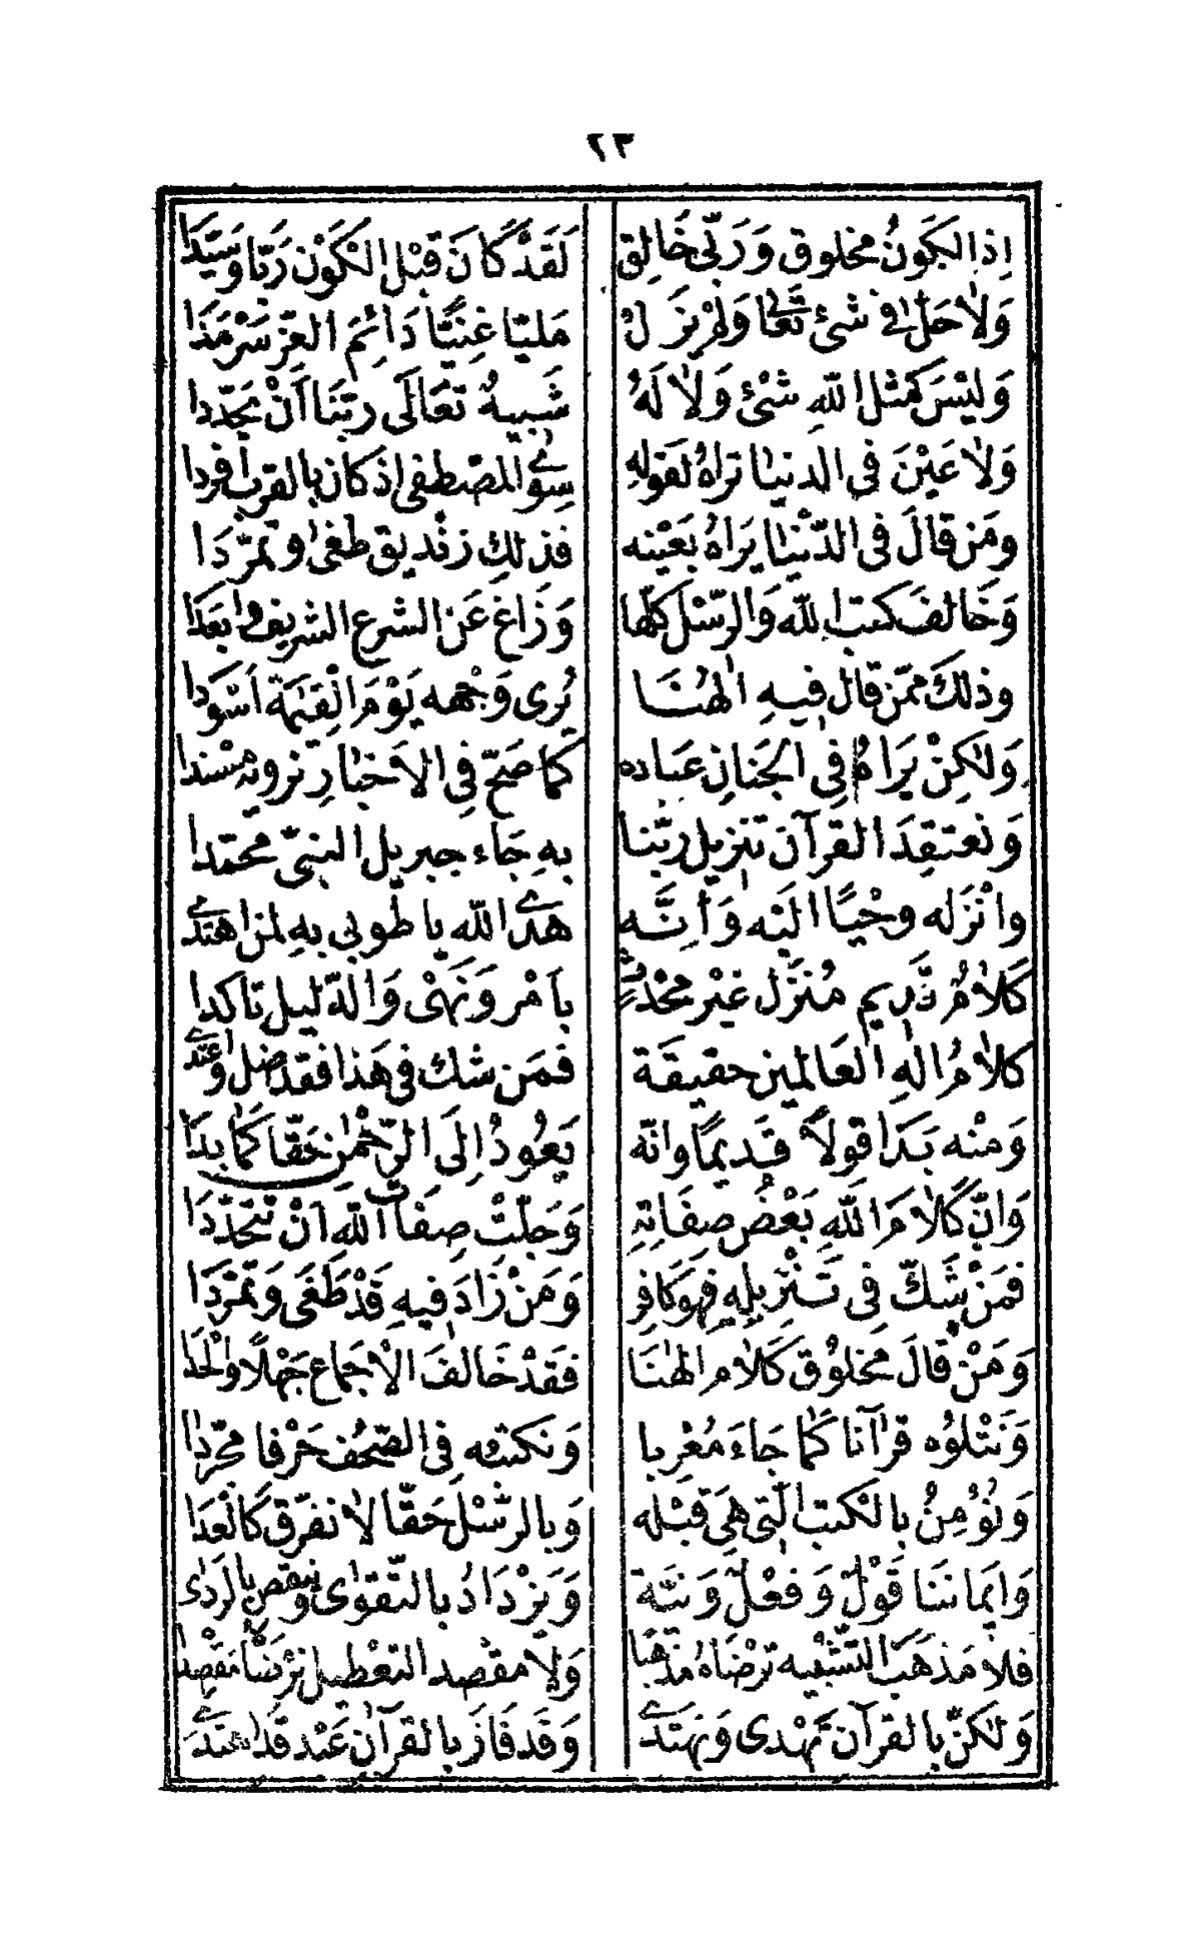 ٢٣
اِذِ الكَونُ مخلوق وَرَبّى خَالِق لَقَدْ كَانَ قَبْل الْكَوْن رَبّا وَسَيّدَا
وَلاٰ حَلَّ فى شئ تَعَالىٰ وَلَمْ يَزَلْ مَليّا غَنِيّاً دَائِمَ العِزّ سَرْمَدَا
وَليْسَ كَمثْل اللّهِ شَئْ وَلاٰ لَهُ شَبيهٌ تعَالَى ربّنَا اَنْ يحدّدا
وَلاٰ عَيْنَ فى الدنيا تراهُ لقَولِهِ سِوَى المصْطفى اذ كان بالقرب افردا
ومَن قالَ فى الدّنْيٰا يَراهُ بعَيْنه فذٰلِكِ زنْديق طغىٰ وتمرّدَا
وَخَالفَ كتب اللّه وَالرّسْل كلّها وَزَاغَ عَن الشرع الشريف وابْعَدَا
وذٰلكَ ممّن قال فيهِ الٰهُنَا يُرٰى وَجْهه يَوْمَ الْقِيٰمَة اَسْوَدا
وَلٰكِنْ يَرَاهُ فِى الجَنانِ عبَاده كما صَحّ فِى الاَخبٰارِ نرويه مسْندا
وَنعتقِدَ القرآن تنزيل ربّنا بهِ جَاء جبريل النبىّ محمّدا
وانْزَله وحْيًا اليْه وَأنّه هدَى اللّه يا طُوبى بهِ لمن اهتدى
كَلاٰمٌ قَدِيم مُنزَل غيْر محْدث بأمْر وَنَهْى وَالدّليل تاكدا
كَلاٰمُ الٰهِ العَالمين حقيقَة فمَن شك فى هَذا فقَد ضل واعتدى
وَمنْه بَدَا قولاً قَديمًا وانّه يَعُودُ اِلَى الرّحْمٰن حَقّا كَمٰا بدَا
وَانّ كَلاٰمَ اللّهِ بَعْض صِفَاتِهِ وَجَلّتْ صِفات اللّه اَنْ تتحَدّدَا
فمَنْ شَكّ فِى تَنْزِيلِهِ فهو كَافِر وَمَنْ زَادَ فيهِ قَدْ طَغَى وَتمَرّدَا
وَمَنْ قالَ مَخلوُق كَلاٰم الٰهنَا فقَدْ خَالفَ الاْجماع جَهْلاً وَالْحَدَا
وَنَتْلوُه قرٰآنا كَمٰا جَاءَ مُعْرِبا وَنكتبُه فِى الصّحُف حَرْفا مجَرّدا
وَنُؤْمِنُ بالكتب الّتى هِىَ قبْله وَبالرّسْل حَقّا لاٰ نفرّق كَالْعدَا
وَايمانَنَا قَوْلٌ وَفعْلٌ وَنيّة وَيَزْدَادُ بالتّقوٰى وينقص بالرَدٰى
فلا مَذهَبَ التّشْبيه ترْضَاهُ مذْهَبا وَلاٰ مقْصد التعْطيل نَرْضَاهُ مَقْصِدا
وَلٰكنّ بالقرآن نَهْدى وَنهتَدى وَقَد فَازَ بالقرآن عَبْد قد اهتدى